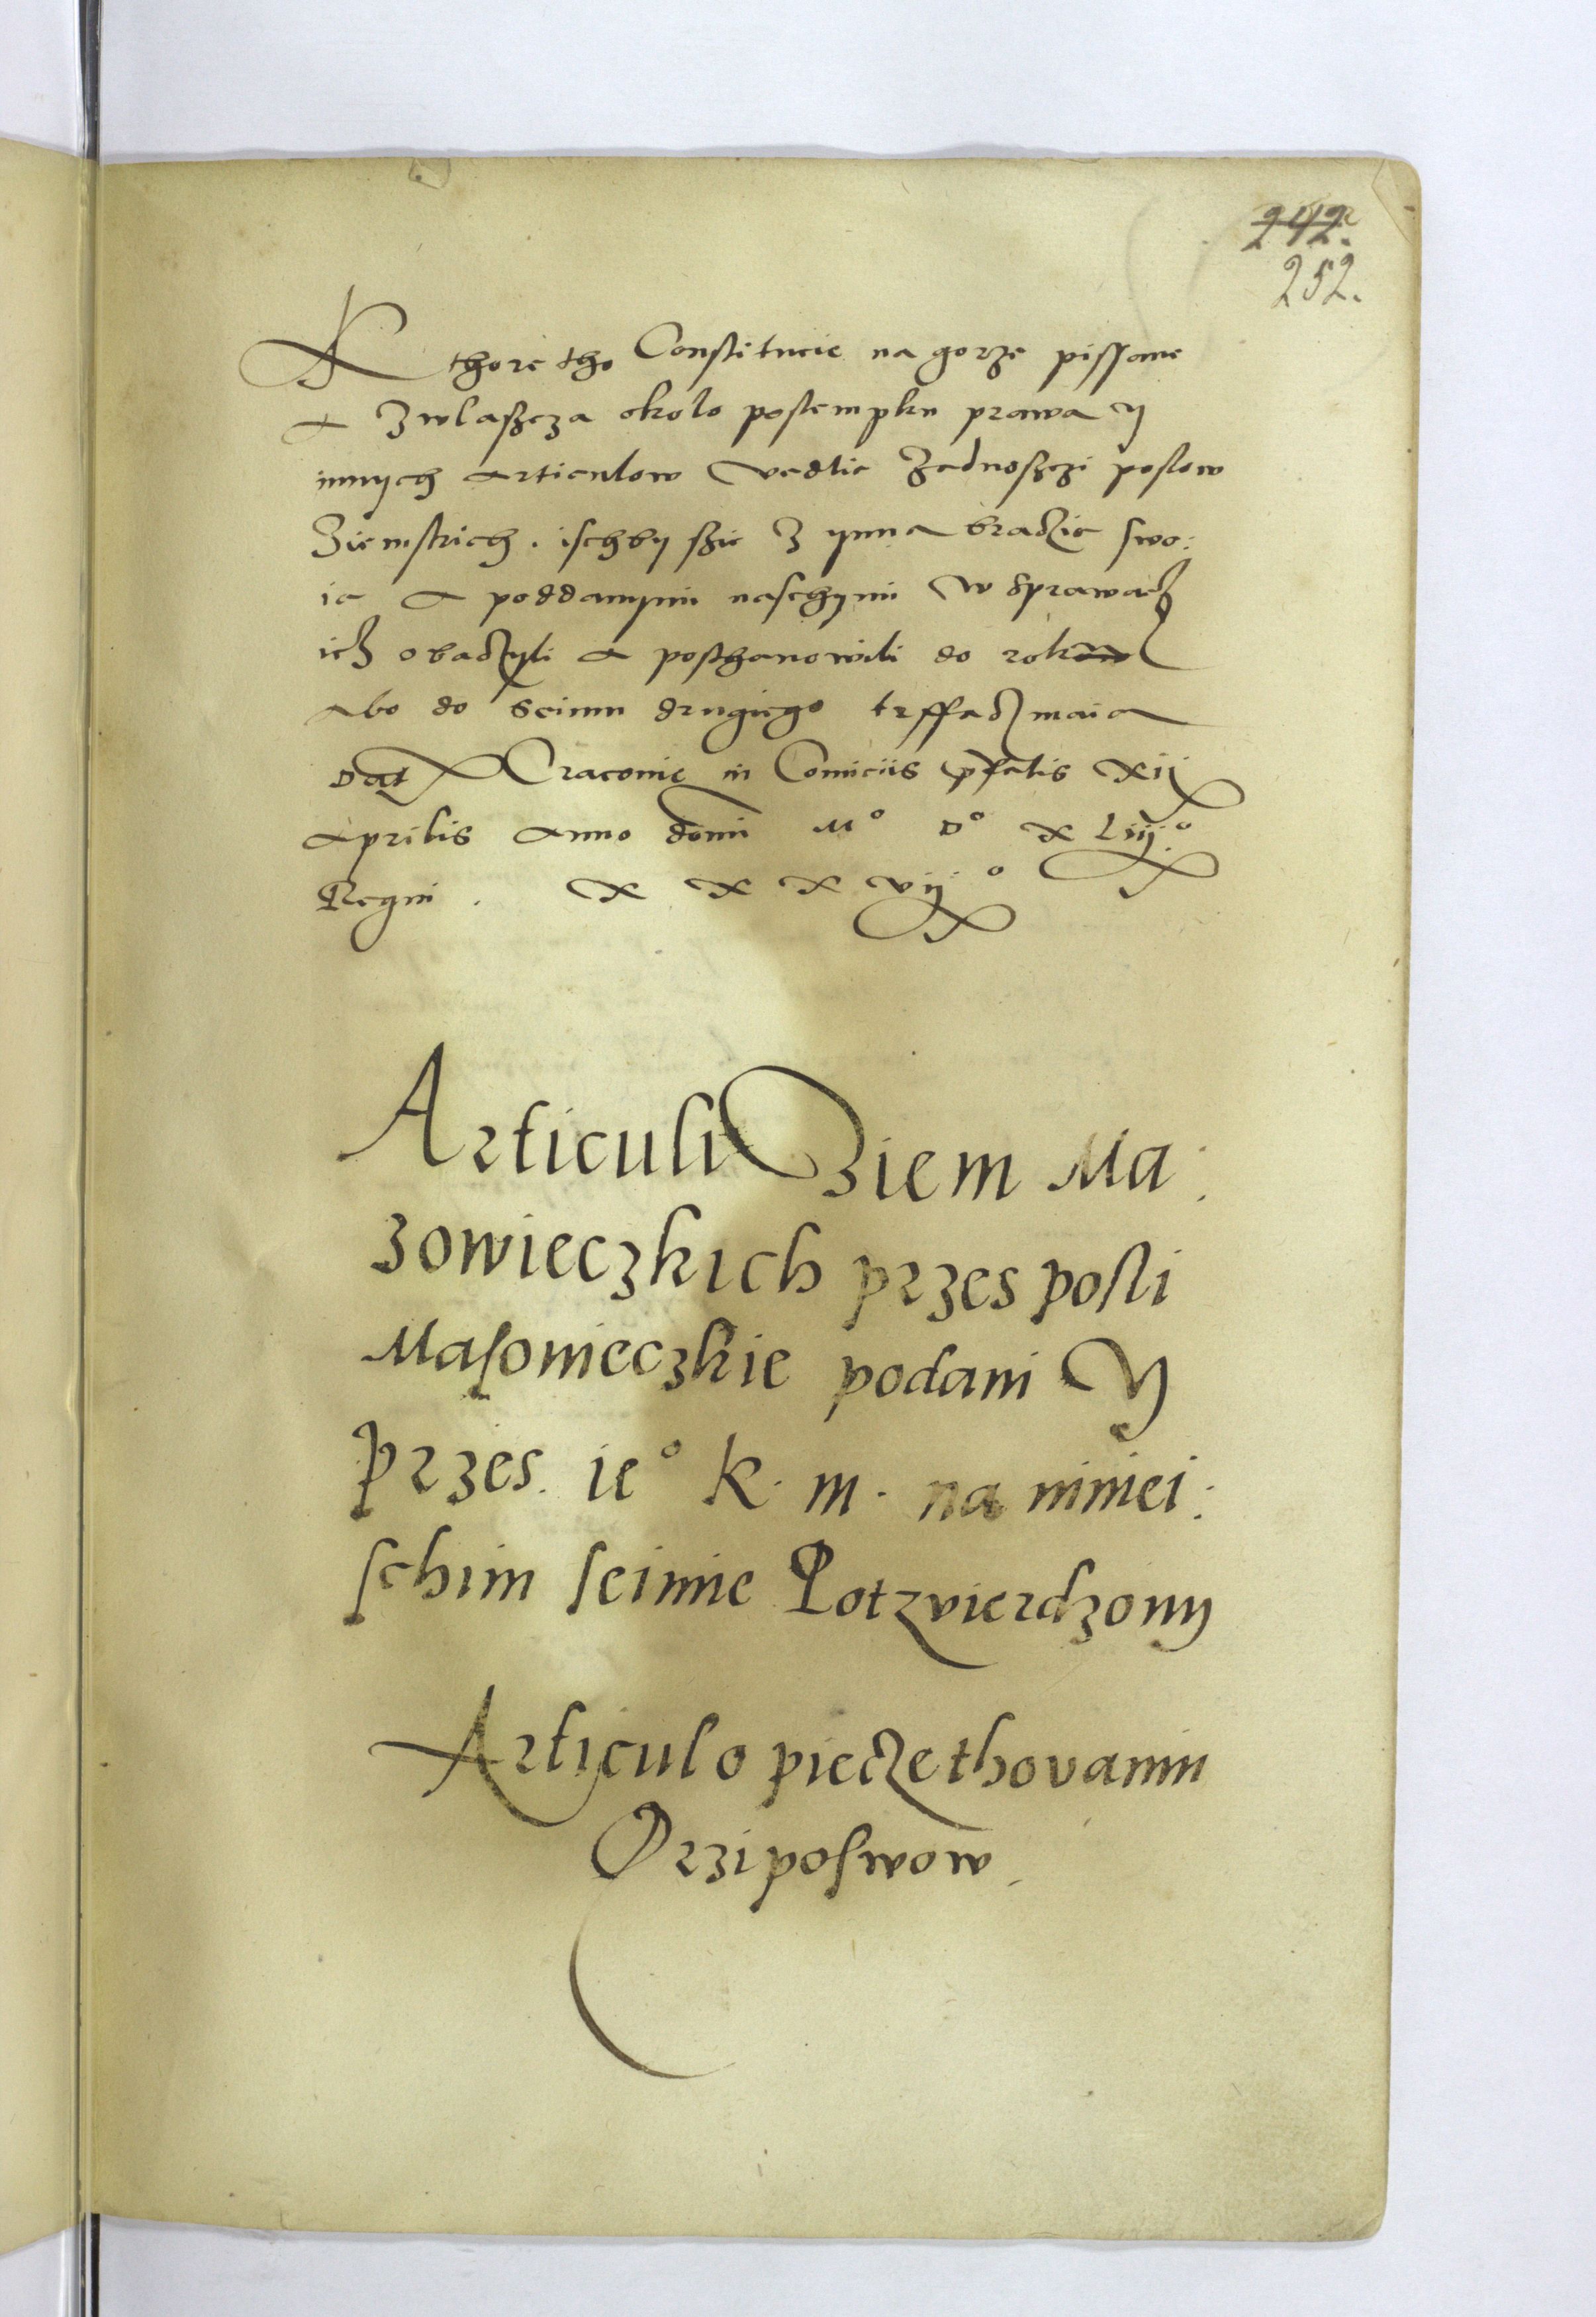 242.
252.
Kthore tho Constitucie na gorze pissane
a Zwlaszcza okolo postempku prawa y
innych articulow vedlie Zadnoszczi poslow
Ziemskich. ischby szie z ynna bradzie swo:
ie a poddanymi naschymi w sprawach
ich obadzyli a posthanowili do roku
abo do seimu drugiego trffadz maia
Dat Cracovie in Comiciis pfatis xij
aprilis anno domi M° D° x Liij.°
Regni. x x x vij.°
Articuli Ziem Ma:
zowieczkich przes posli
Masovieczkie podani y
przes. ie° K. m. na niniei:
schim seimie Potzvierdzony
Articul o pieczethovaniu
Przi poswow.